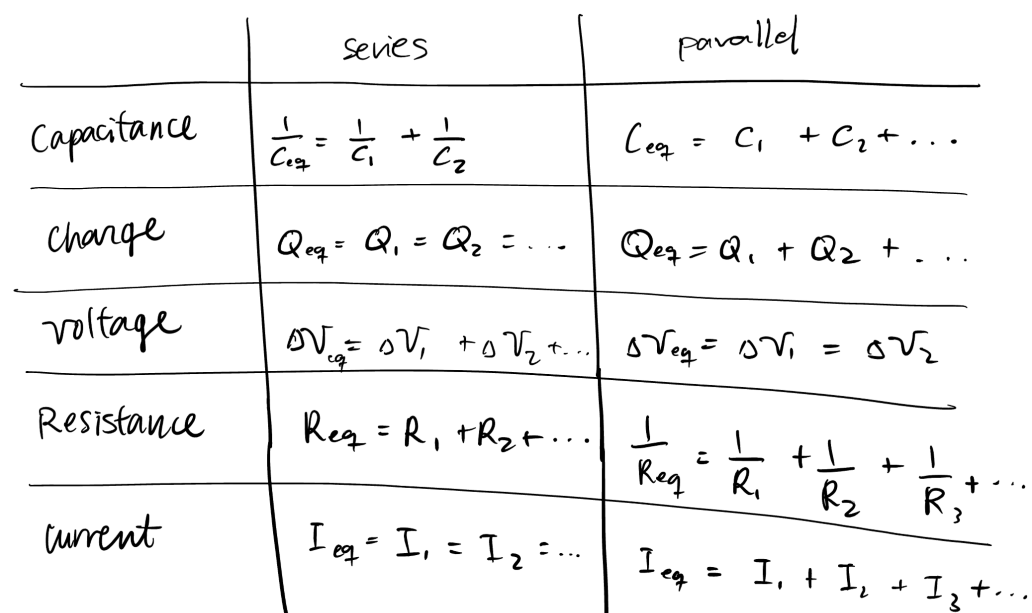 series parallel
Capacitance 1/Ceq = 1/C₁ + 1/C₂ Ceq = C₁ + C₂ + ...
charge Qeq = Q₁ = Q₂ = ... Qeq = Q₁ + Q₂ + ...
voltage ΔVeq = ΔV₁ + ΔV₂ + ... ΔVeq = ΔV₁ = ΔV₂
Resistance Req = R₁ + R₂ + ... 1/Req = 1/R₁ + 1/R₂ + 1/R₃ + ...
current Ieq = I₁ = I₂ = ... Ieq = I₁ + I₂ + I₃ + ...